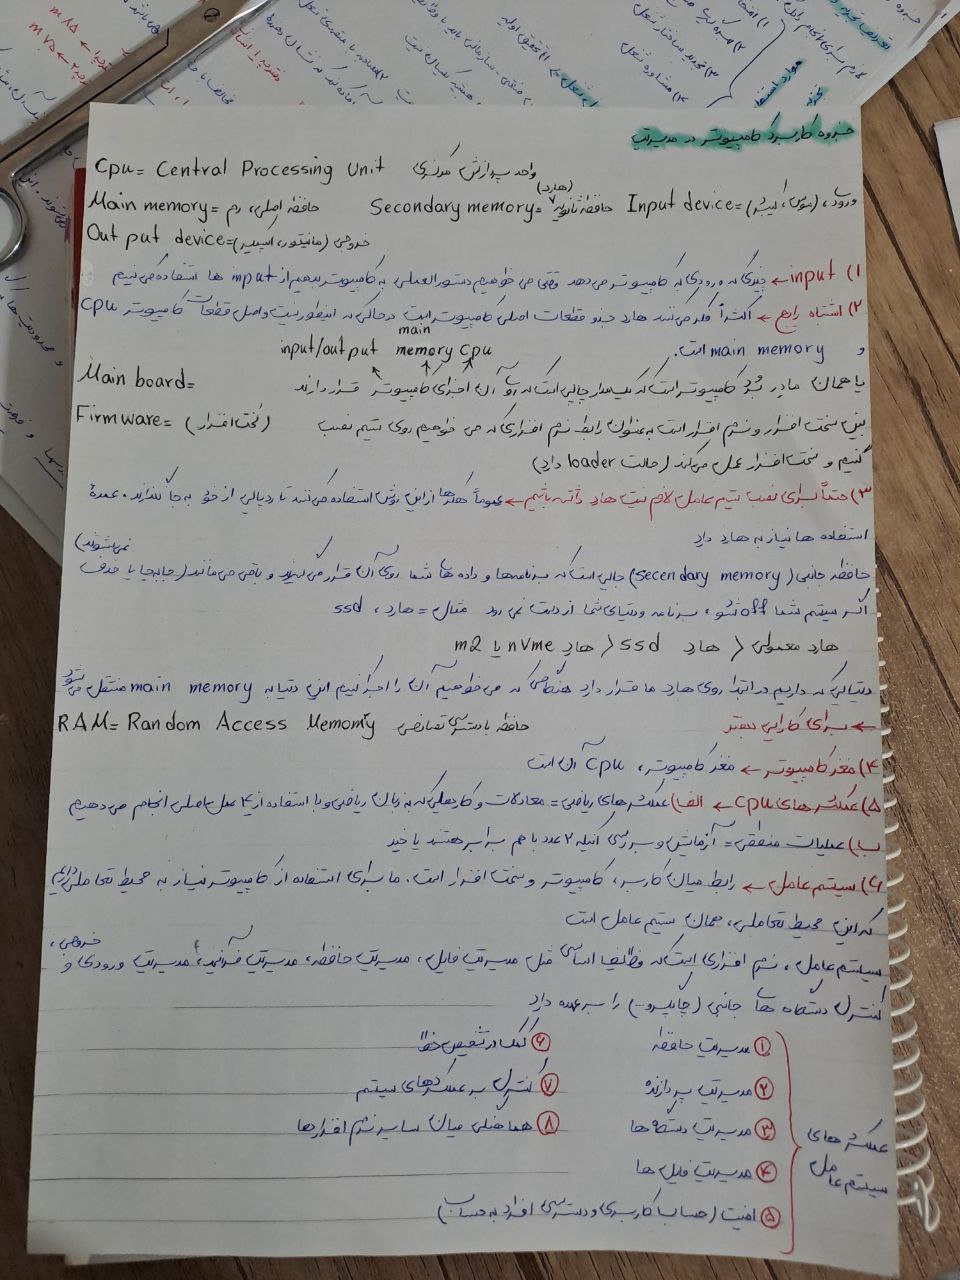 جزوه کاربرد کامپیوتر در مدیریت
Cpu = Central Processing Unit واحد پردازش مرکزی
Main memory = حافظه اصلی، رم Secondary memory = حافظه ثانویه (هارد) Input device = ورودی، (موس، کیبرد)
Out put device = خروجی (مانیتور، اسپیکر)
۱) input ← چیزی که ورودی به کامپیوتر می دهد وقتی می خواهیم دستورالعملی به کامپیوتر بدهیم از input ها استفاده می کنیم
۲) اشتباه رایج ← اکثراً فکر می کنند هارد جزو قطعات اصلی کامپیوتر است درحالی که اینطور نیست و اصل قطعات کامپیوتر cpu
و main memory است.
input/output main memory Cpu
Main board = یا همان مادربُرد کامپیوتر است که یک مدار چاپی است که روی آن اجزای کامپیوتر قرار دارند
Firmware = (سخت افزار) بین سخت افزار و نرم افزار است به عنوان رابط نرم افزاری که می خواهیم روی سیستم نصب
کنیم و سخت افزار عمل می کند (حالت loader دارد)
۳) حتماً برای نصب سیتم عامل لازم نیست هارد داشته باشیم ← عموماً هکرها از این روش استفاده می کنند تا ردپایی از خود به جا نگذارند. عمدهٔ
استفاده ها نیاز به هارد دارد
حافظه جانبی (secendary memory) جایی است که برنامه ها و داده های شما روی آن قرار می گیرند و باقی می مانند (جابه جا یا حذف نمی شوند)
اگر سیستم شما off شود، برنامه و دیتای شما از دست نمی رود مثال = هارد، ssd
هارد معمولی < هارد ssd < هارد nvme یا m2
دیتایی که داریم در ابتدا روی هارد ما قرار دارد هنگامی که می خواهیم آن را اجرا کنیم این دیتا به main memory منتقل می شود
← برای کارایی بهتر
RAM = Random Access Memory حافظه با دسترسی تصادفی
۴) مغز کامپیوتر ← مغز کامپیوتر، Cpu آن است
۵) عملکرد های cpu ← الف) عملکرد های ریاضی = معادلات و کارهایی که به زبان ریاضی و با استفاده از ۴ عمل اصلی انجام می دهیم
ب) عملیات منطقی = آزمایش و بررسی اینکه ۲ عدد با هم برابر هستند یا خیر
۶) سیستم عامل ← رابط میان کاربر، کامپیوتر و سخت افزار است. ما برای استفاده از کامپیوتر نیاز به محیط تعاملی داریم
که این محیط تعاملی، همان سیستم عامل است
سیستم عامل، نرم افزاری است که وظایف اساسی مثل مدیریت فایل، مدیریت حافظه، مدیریت فرآیند، مدیریت ورودی و خروجی،
کنترل دستگاه های جانبی (چاپگر و...) را بر عهده دارد
عملکرد های سیستم عامل
① مدیریت حافظه
② مدیریت پردازنده
③ مدیریت دستگاه ها
④ مدیریت فایل ها
⑤ امنیت (حساب کاربری و دسترسی افراد به حساب)
⑥ کمک در تشخیص خطا
⑦ کنترل بر عملکردهای سیستم
⑧ هماهنگی میان سایر نرم افزارها